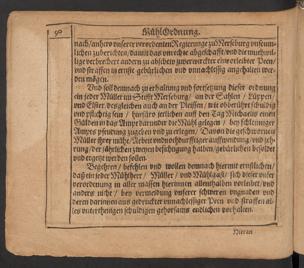 90 MühlOrdnung.
nach/anhero unserer verordenten Regierunge zu Merseburg unseumlichen
zuberichten/damit das unrecht abgeschafft/und die muthwillige
verbrecher andern zu abschew zuverwirckter
und straffen in ernste gebürlichen und unnachlessig angehalten werden
mögen.
Und soll demnach zu erhaltung und fortsetzung dieser ordnung
ein jeder Müller im Stifft Merseburg/ an der Sahlen/ Luppen/
und Elster/desgleichen auch an der Pleissen/ wie obberührt/schuldig
und pflichtig sein / hinfüro jerlichen auff den Tag Michaelis einen
Gülden in das Ampt darunter die Mühl gelegen / bey schleuniger
Ampts pfendung zugeben und zu erlegen/ Davon die geschwornen
Müller ihrer mühe/ und zehrung/
der jährlichen zweyen besichtigung halben/gebürlichen besoldet
und ergetzt werden sollen.
Begehren/ befehlen und wollen demnach hiermit ernstlichen/
daß ein jeder Mühlherr/ Müller/ und Mühlgast/ sich dieser unser
verordnung in aller massen hierinnen allenthalben vorleibet/und
anders nicht/ bey vermeidung unserer schweren ungnaden und
deren darinnen aus gedruckter unnachlessiger Pen und straffen alles
unterthenigen schuldigen gehorsams endlichen vorhalten.
Hieran